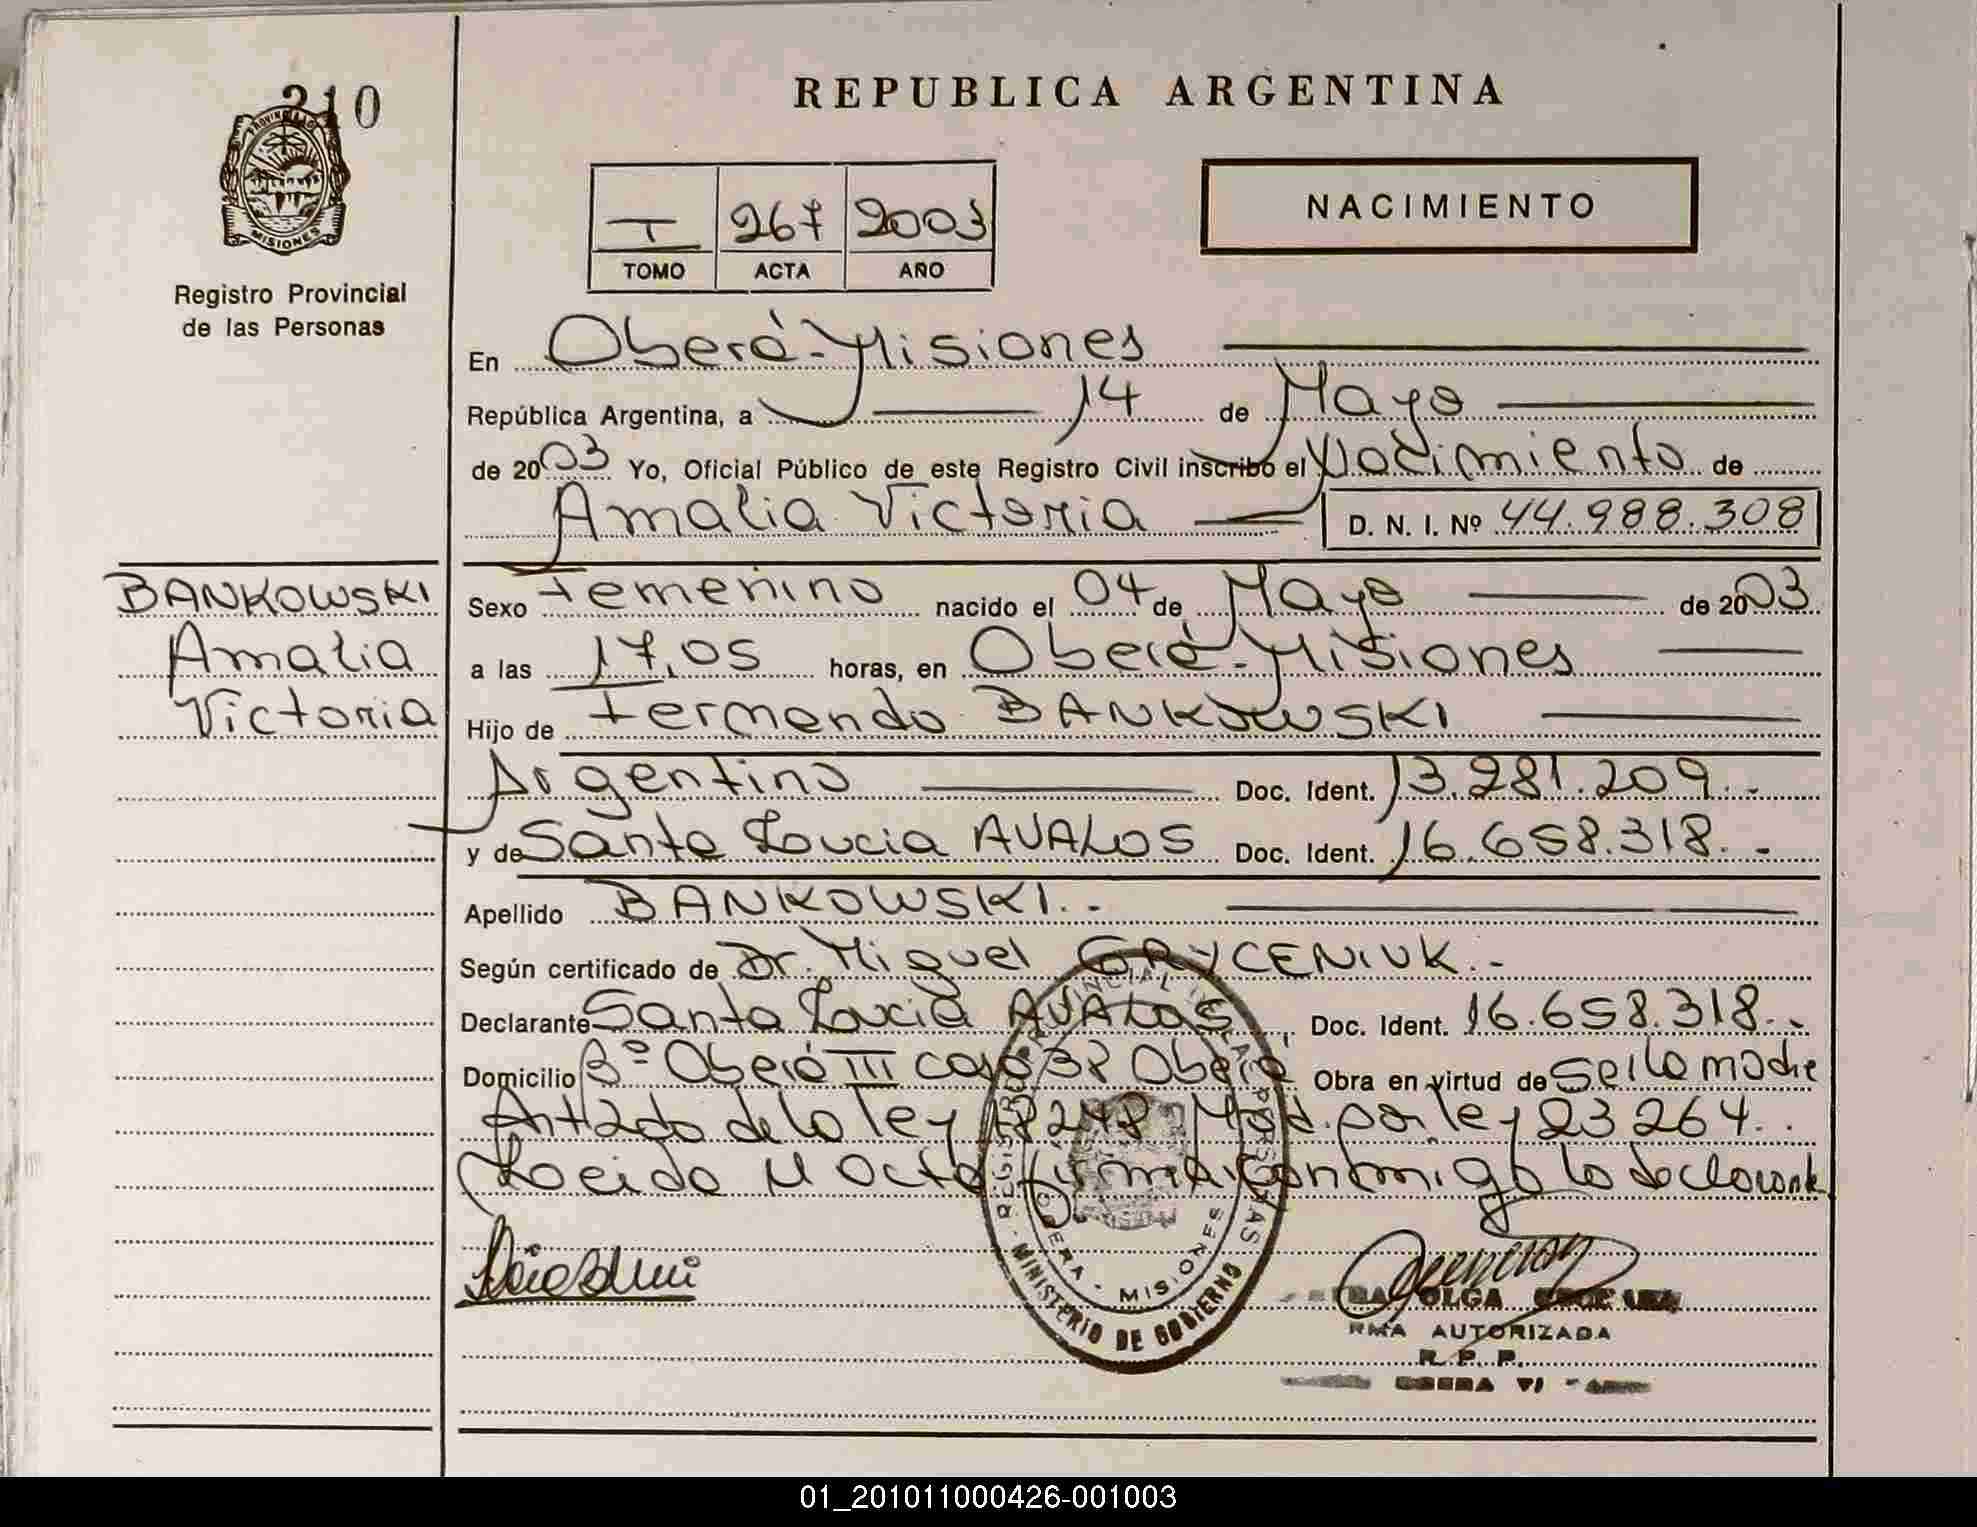 210
PROVINCIA DE
MISIONES
Registro Provincial
de las Personas
REPUBLICA ARGENTINA
I 267 2003
TOMO ACTA AÑO
NACIMIENTO
En Oberá-Misiones
República Argentina, a 14 de Mayo
de 2003 Yo, Oficial Público de este Registro Civil inscribo el Nacimiento de
Amalia Victoria D. N. I. Nº 44.988.308
BANKOWSKI
Amalia
Victoria
Sexo Femenino nacido el 04 de Mayo de 2003
a las 17,05 horas, en Oberá-Misiones
Hijo de Fernando BANKOWSKI
Argentino Doc. Ident. 13.281.209.-
y de Santa Lucia AVALOS Doc. Ident. 16.658.318.-
Apellido BANKOWSKI.-
Según certificado de Dr. Miguel GRYCENIUK.-
Declarante Santa Lucia AVALOS Doc. Ident. 16.658.318.-
Domicilio Bº Oberá III casa 32 Oberá Obra en virtud de ser la madre
Art 2do de la ley 18248 Mod. por ley 23264.
Leida el acta firma conmigo la declarante
REGISTRO PROVINCIAL DE LAS PERSONAS
OBERA - MISIONES
MINISTERIO DE GOBIERNO
OLGA
RMA AUTORIZADA
R. P. P.
01_201011000426-001003